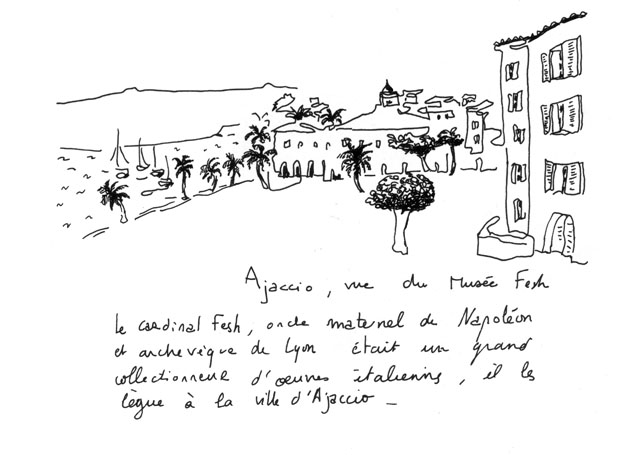 Ajaccio, vue du Musée Fesh
Le cardinal Fesh, oncle maternel de Napoléon
et archevêque de Lyon était un grand
collectionneur d'œuvres italiennes, il les
lègue à la ville d'Ajaccio _